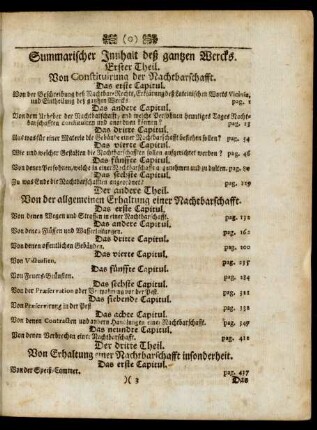 (o)
Summarischer Innhalt deß gantzen Wercks.
Erster Theil.
Von Constituirung der Nachtbarschafft.
Das erste Capitul.
Von der Beschreibung deß Nachtbar-Rechts, Erklärung deß Lateinischen Worts Vicinia,
und Eintheilung deß gantzen Wercks. pag. 1
Das andere Capitul.
Von dem Urheber der Nachtbarschafft, und welche Personen heuntiges Tages Nacht-
barschafften constituiren und anordnen können? pag. 2
Das dritte Capitul.
Aus was für einer Materie die Gebäue einer Nachtbarschafft bestehen sollen? pag. 34
Das vierte Capitul.
Wie und welcher Gestalten die Nachtbarschafften sollen auffgerichtet werden? pag. 46
Das fünffte Capitul.
Von denen Personen, welche in einer Nachtbarschafft anzunehmen und zu dulten. pag.
Das sechste Capitul.
Zu was Ende die Nachtbarschafften angeordnet? pag. 119
Der andere Theil.
Von der allgemeinen Erhaltung einer Nachtbarschafft.
Das erste Capitul.
Von denen Wegen und Strassen in einer Nachtbarschafft. pag. 131
Das andere Capitul.
Von denen Flüssen und Wasserleitungen. pag. 160
Das dritte Capitul.
Von denen offentlichen Gebäuden. pag. 200
Das vierte Capitul.
Von Victualien. pag. 235
Das fünffte Capitul.
Von Feuers-Brünsten. pag. 284
Das sechste Capitul.
Von der Præservation oder Verwahrung vor der Pest. pag. 321
Das siebende Capitul.
Von Conservirung in der Pest pag.
Das achte Capitul.
Von denen Contracten und andern Handlungen einer Nachtbarschafft. pag. 349
Das neundte Capitul.
Von denen Verbrechen einer Nachtbarschafft. pag. 421
Der dritte Theil.
Von Erhaltung einer Nachtbarschafft insonderheit.
Das erste Capitul.
Von der Speiß-Cammer. pag. 437
)( 3 Das